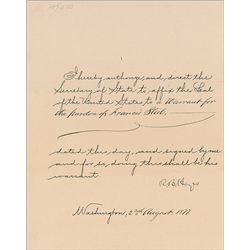 I hereby authorize, and, direct the
Secretary of State to affix the Seal
of the United States to a Warrant for
the pardon of Francis
dated this, day, and signed by me
and for so, doing this shall be his
warrant.
R B Hayes
Washington, 2nd August 1877